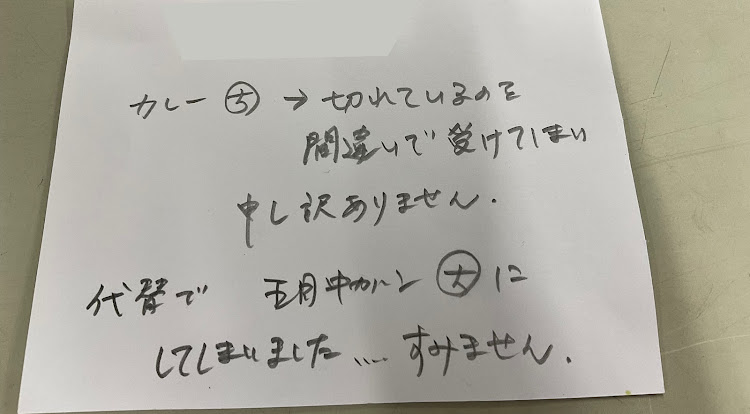 カレー ㊄ → 切れているのを
間違いで受けてしまい
申し訳ありません.
代替で 中カレン に
してしまいました.... すみません.